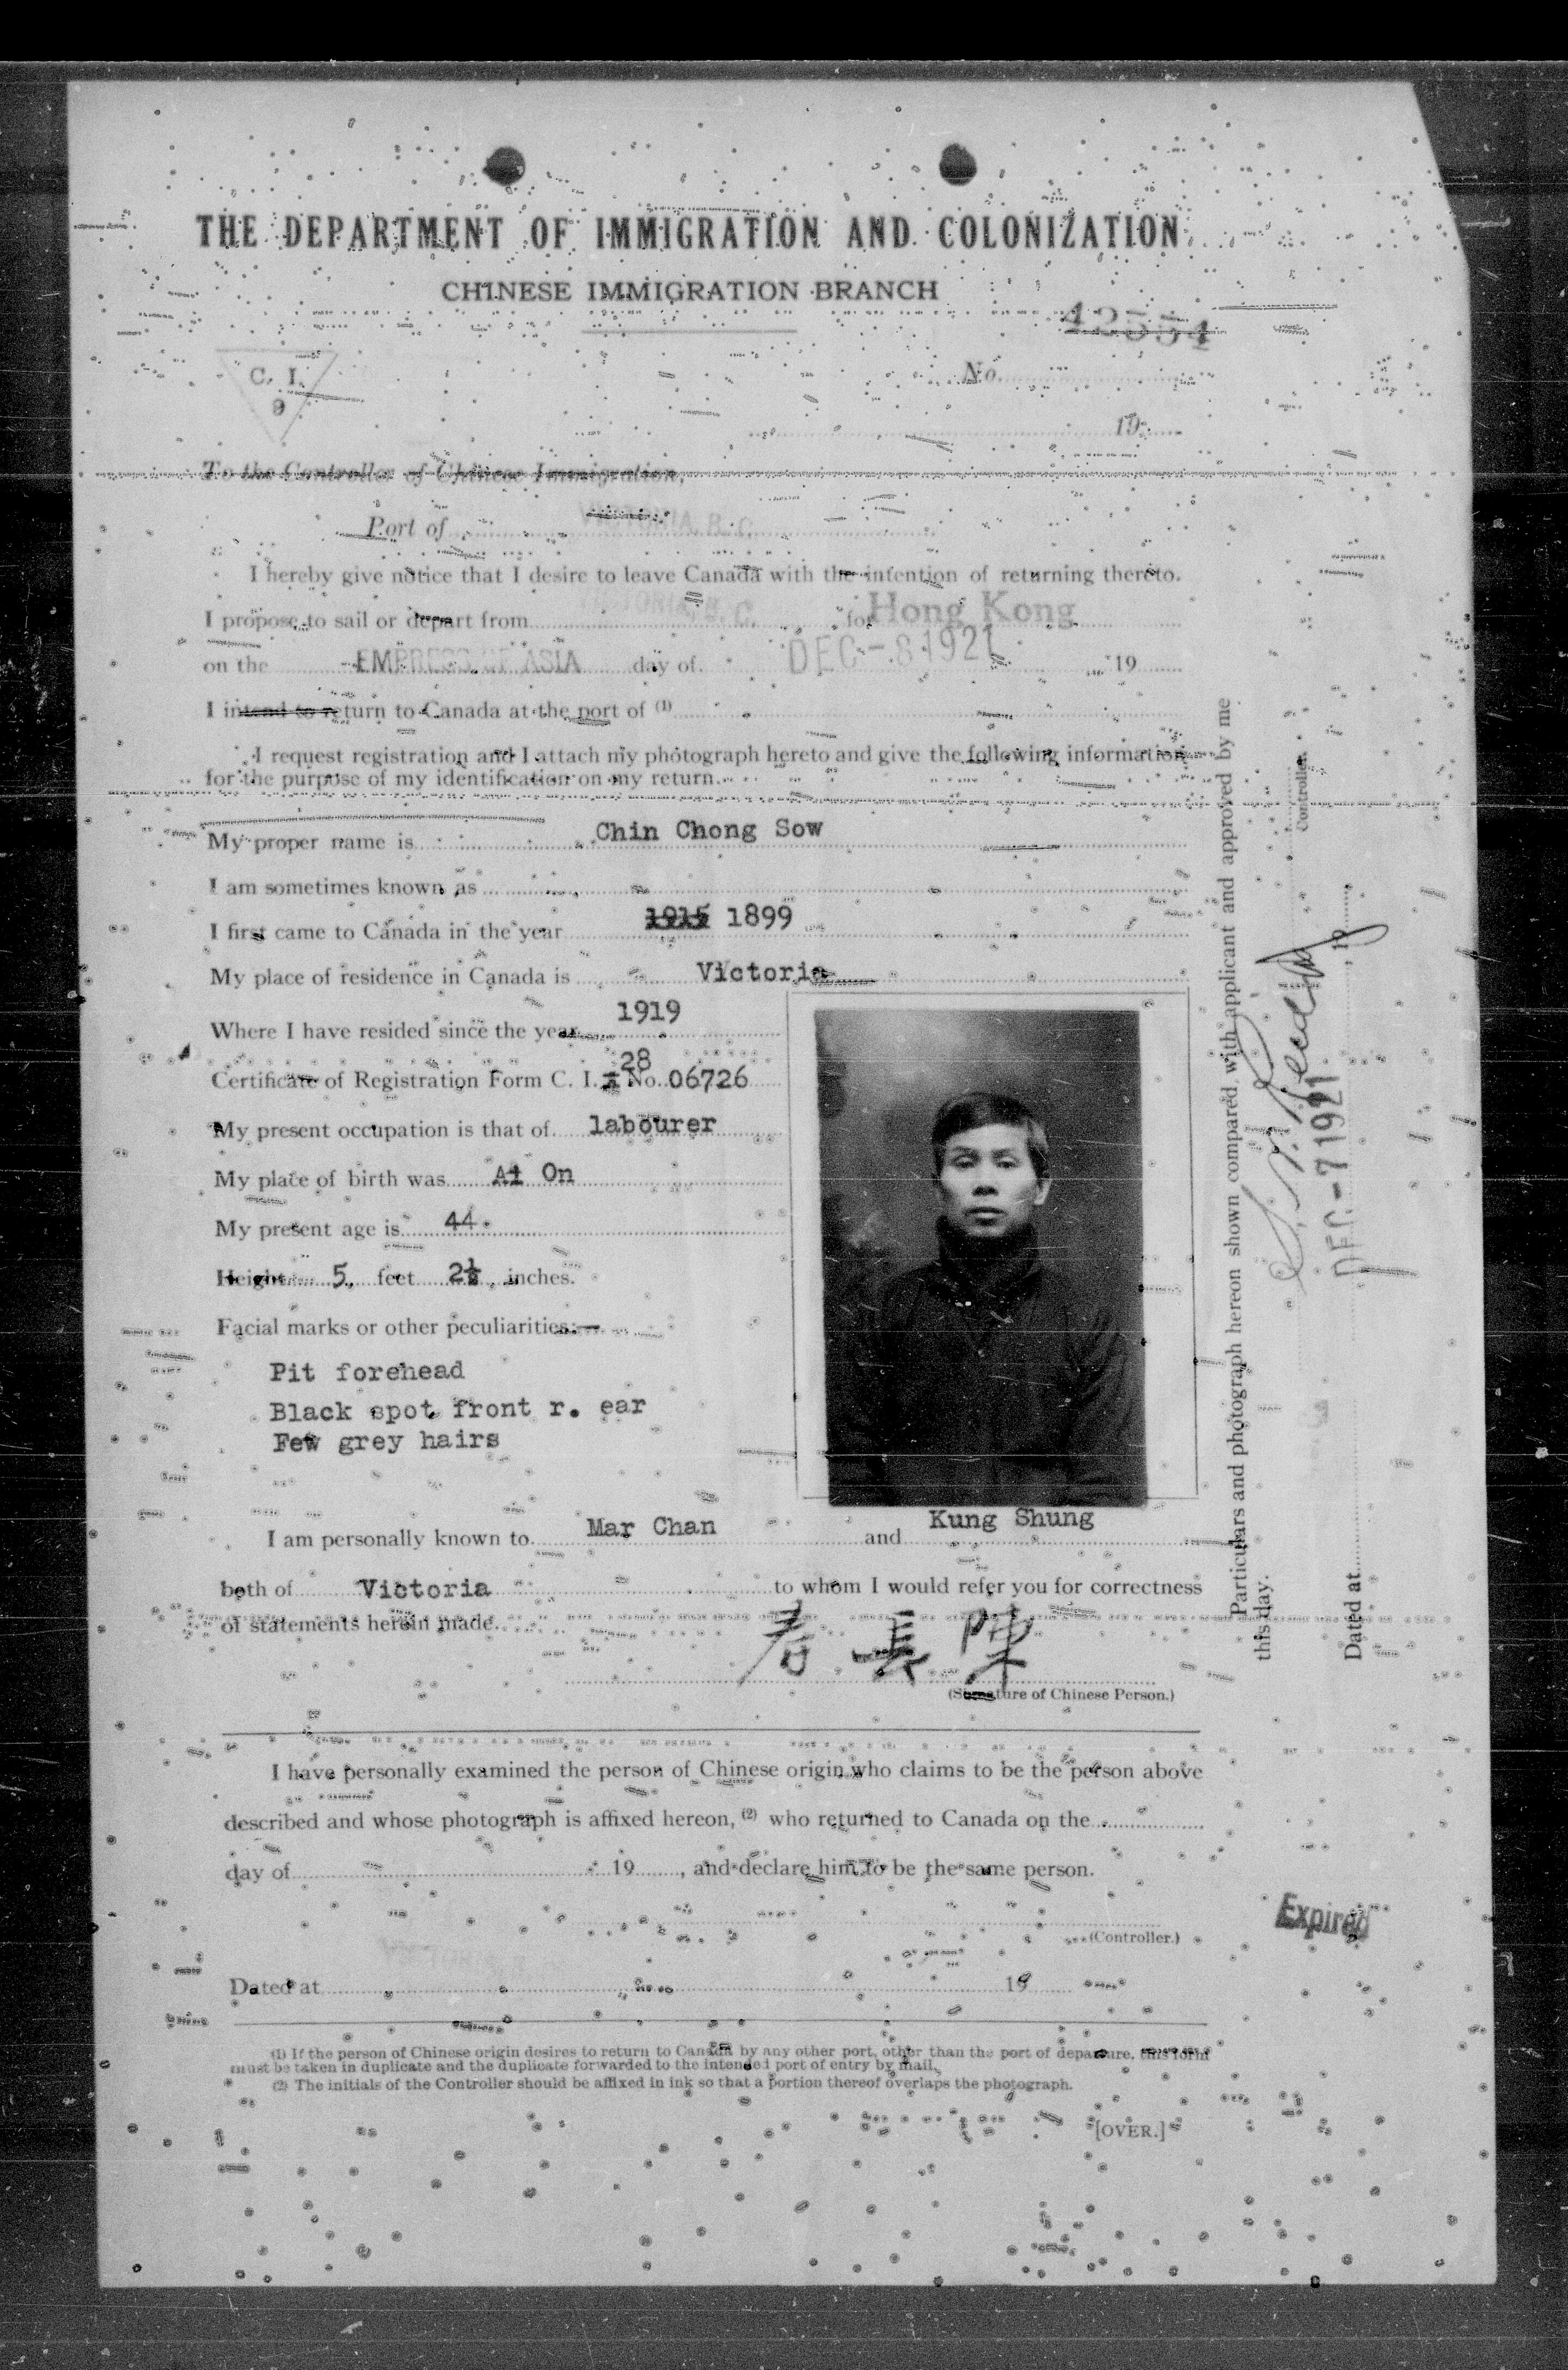 THE DEPARTMENT OF IMMIGRATION AND COLONIZATION
CHINESE IMMIGRATION BRANCH
42554
C. I.
9
No.
19
To the Controller of Chinese Immigration,
Port of VICTORIA, B. C.
I hereby give notice that I desire to leave Canada with the intention of returning thereto.
I propose to sail or depart from VICTORIA, B. C. for Hong Kong
on the EMPRESS OF ASIA day of DEC -8 1921 19
I intend to return to Canada at the port of (1)
I request registration and I attach my photograph hereto and give the following information
for the purpose of my identification on my return.
My proper name is Chin Chong Sow
I am sometimes known as
I first came to Canada in the year 1915 1899
My place of residence in Canada is Victoria
Where I have resided since the year 1919
28
Certificate of Registration Form C. I. No. 06726
My present occupation is that of labourer
My place of birth was Ai On
My present age is 44.
Height 5 feet 2½ inches.
Facial marks or other peculiarities:—
Pit forehead
Black spot front r. ear
Few grey hairs
I am personally known to Mar Chan and Kung Shung
both of Victoria to whom I would refer you for correctness
of statements herein made.
春 長 陳
(Signature of Chinese Person.)
I have personally examined the person of Chinese origin who claims to be the person above
described and whose photograph is affixed hereon, (2) who returned to Canada on the
day of 19 , and declare him to be the same person.
(Controller.)
Dated at 19
(1) If the person of Chinese origin desires to return to Canada by any other port, other than the port of departure, this form
must be taken in duplicate and the duplicate forwarded to the intended port of entry by mail.
(2) The initials of the Controller should be affixed in ink so that a portion thereof overlaps the photograph.
[OVER.]
Particulars and photograph hereon shown compared with applicant and approved by me
this day.
Controller.
Dated at DEC -7 1921 , 19
Expired